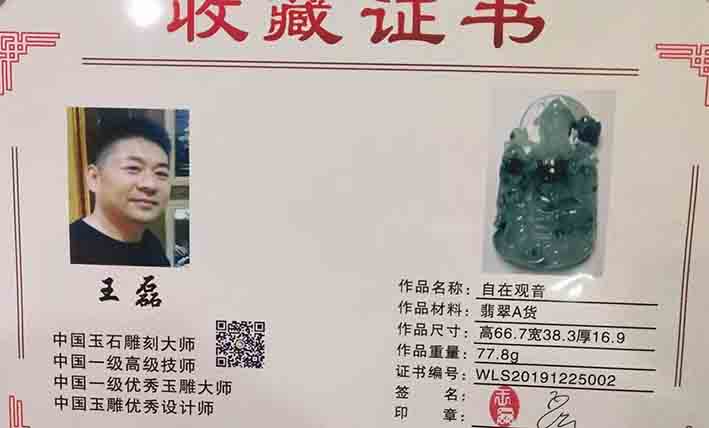 收藏证书
王磊
中国玉石雕刻大师
中国一级高级技师
中国一级优秀玉雕大师
中国玉雕优秀设计师
作品名称：自在观音
作品材料：翡翠A货
作品尺寸：高66.7宽38.3厚16.9
作品重量：77.8g
证书编号：WLS20191225002
签名：
印章：